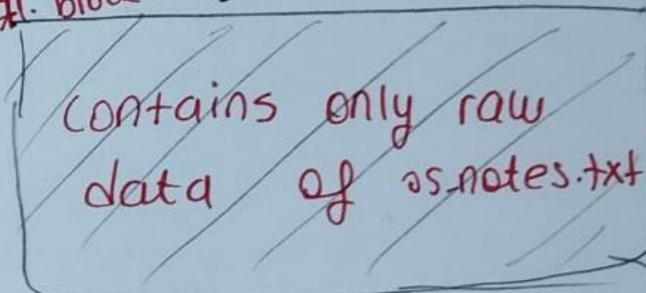 contains only raw
data of os_notes.txt